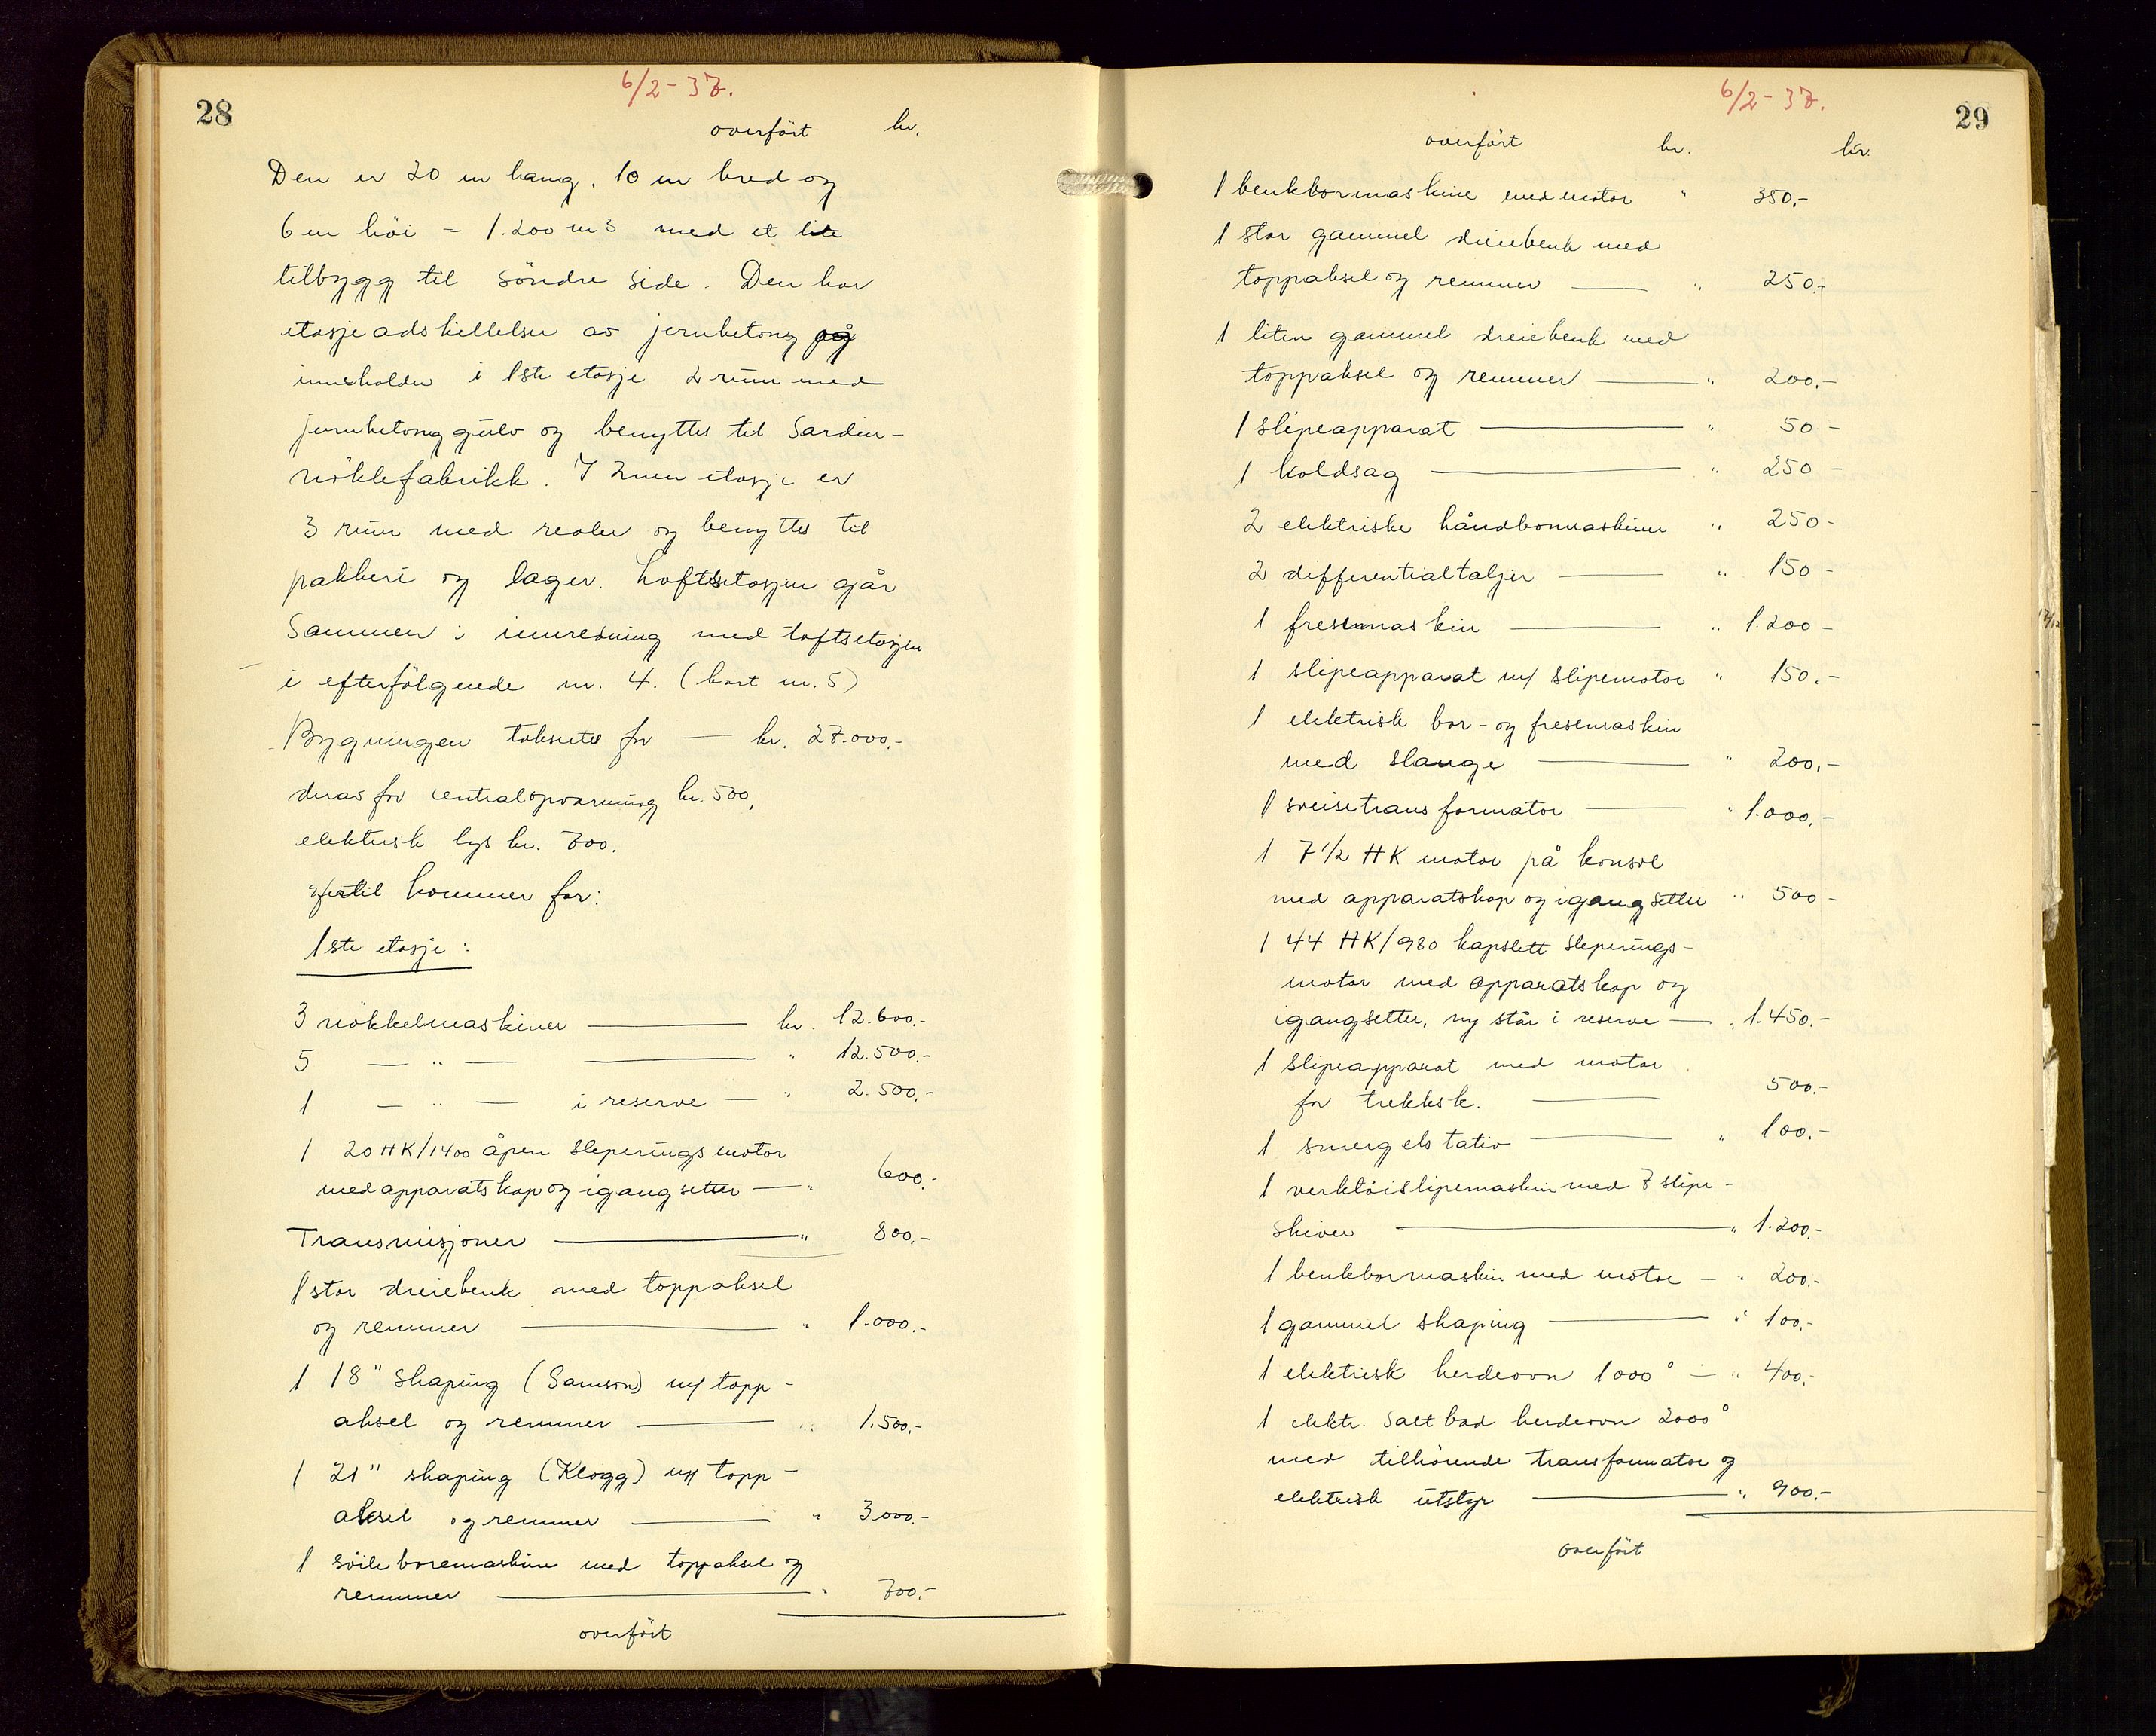 28
6/2-37.
overfört kr.
Den er 20 m lang, 10 m bred og
6 m höi = 1.200 m3 med et lite
tilbygg til söndre side. Den har
etasjeadskillelser av jernbetong og
inneholder i 1ste etasje 2 rum med
jernbetonggulv og benyttes til Sardin-
nöklefabrikk. I 2nen etasje er
3 rum med reoler og benyttes til
pakkeri og lager. Loftsetasjen går
sammen i innredning med loftsetasjen
i efterfölgende nr. 4. (kart nr. 5)
Bygningen takseres for — kr. 27.000,-
derav for centralopvarming kr. 500,
elektrisk lys kr. 700.
Hertil kommer for:
1ste etasje:
3 nökkelmaskiner — kr. 12.600.-
5 — " — — " 12.500.-
1 — " — i reserve — " 2.500.-
1 20 HK/1400 åpen sleperingsmotor
med apparatskap og igangsetter — " 600.-
Transmisjoner — " 800.-
1 stor dreiebenk med toppaksel
og remmer — " 1.000.-
1 18" shaping (Samson) m/ topp-
aksel og remmer — " 1.500.-
1 21" shaping (Klogg) m/ topp-
aksel og remmer — " 3.000.-
1 söileboremaskine med toppaksel og
remmer — " 700.-
overfört
29
6/2-37.
overfört kr. kr.
1 benkbormaskine med motor " 350.-
1 stor gammel dreiebenk med
toppaksel og remmer — " 250.-
1 liten gammel dreiebenk med
toppaksel og remmer — " 200.-
1 slipeapparat — " 50-
1 koldsag — " 250-
2 elektriske håndbormaskiner " 250-
2 differentialtaljer — " 150-
1 fresemaskin — " 1.200-
1 slipeapparat m/ slipemotor " 150.-
1 elektrisk bor- og fresemaskin
med slange — " 200.-
1 sveisetransformator — " 1.000.-
1 7 1/2 HK motor på konsol
med apparatskap og igangsetter " 500-
1 44 HK/980 kapslett sleperings-
motor med apparatskap og
igangsetter, ny står i reserve — " 1.450.-
1 slipeapparat med motor
for trekksk. — 500.-
1 smergelstativ — " 100.-
1 verktöislipemaskin med 7 slipe-
skiver — " 1.200.-
1 benkbormaskin med motor — " 200.-
1 gammel shaping — " 100.-
1 elektrisk herdeovn 1000° — " 400.-
1 elektr. saltbad herdeovn 2000°
med tilhörende transformator og
elektrisk utstyr — " 900.-
overfört